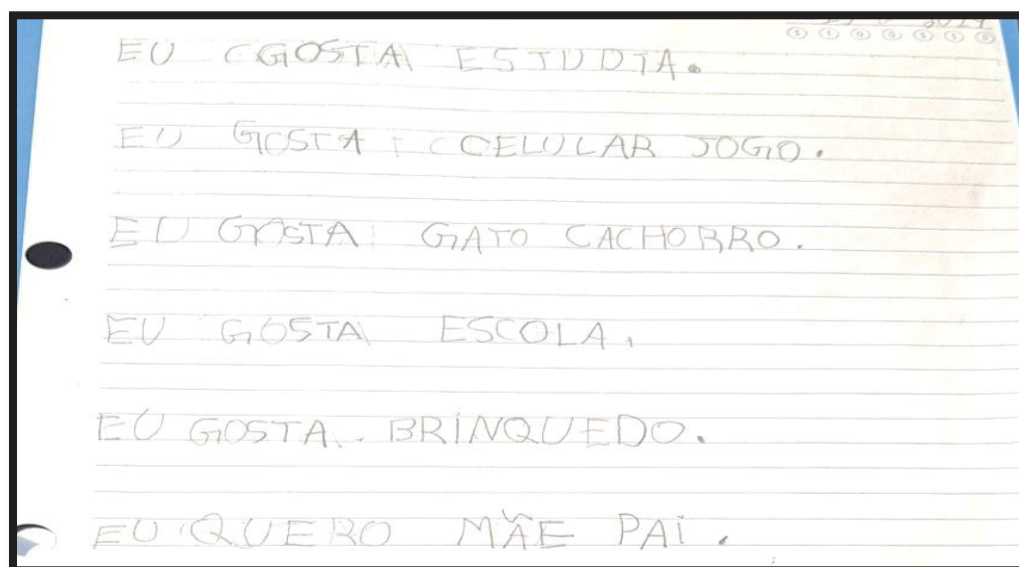 EU GOSTA ESTUDIA.
EU GOSTA CELULAR JOGO.
EU GOSTA GATO CACHORRO.
EU GOSTA ESCOLA.
EU GOSTA BRINQUEDO.
EU QUERO MÃE PAI.